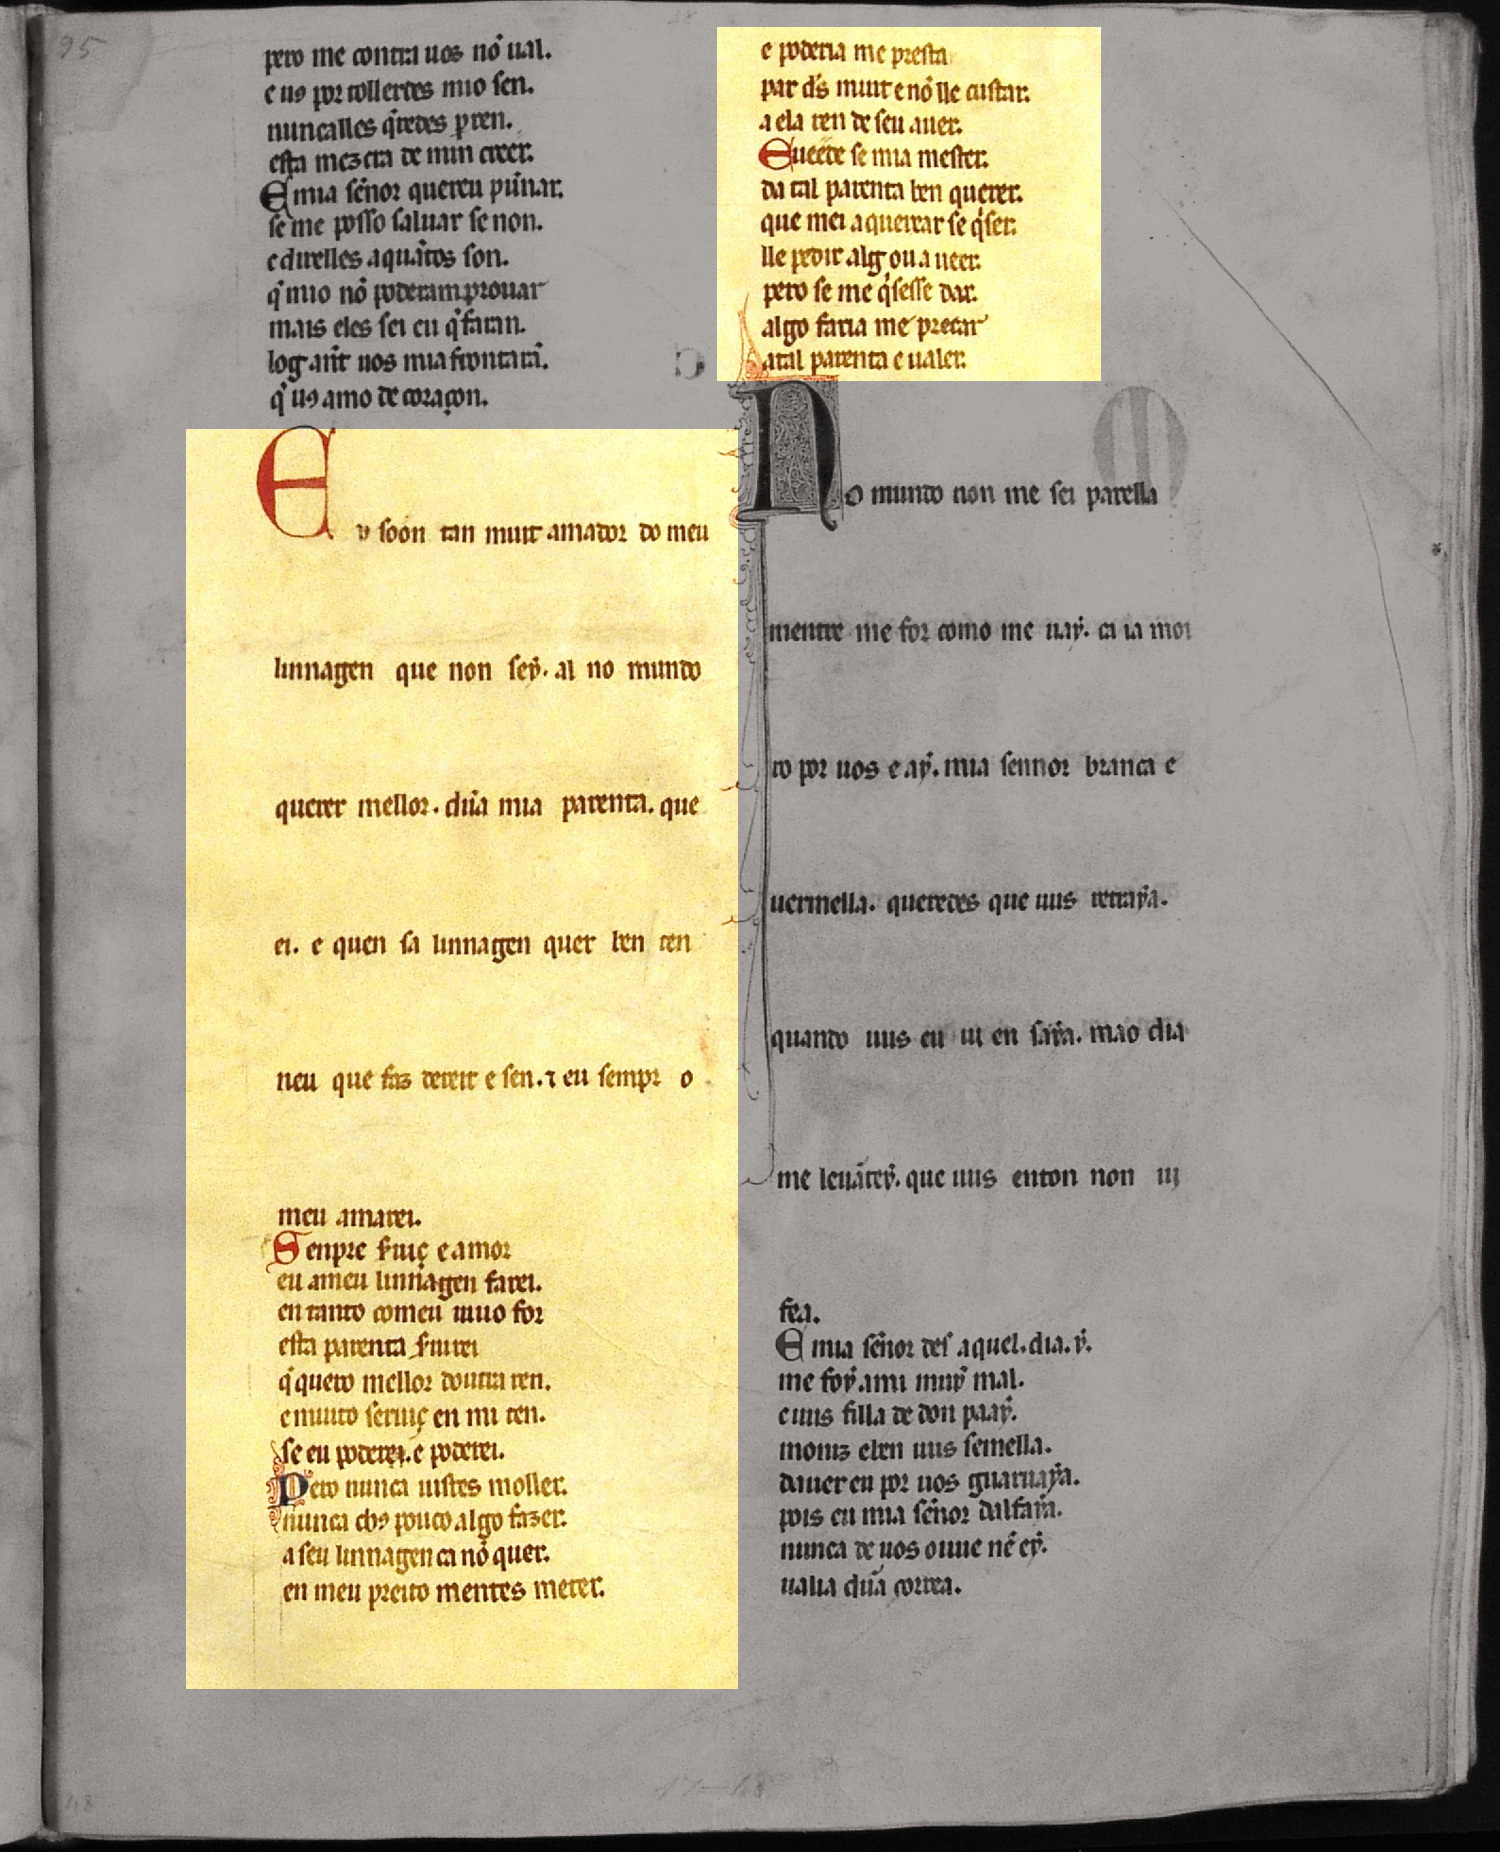 95
pero me contra uos nõ ual.
e uꝯ por tollerdes mio sen.
nuncalles q̃redes p̱ren.
esta mezcra de min creer.
E mia sẽnor quereu pũnar.
se me posso saluar se non.
e direlles aquãtos son.
q̃ mio nõ poderam prouar
mais eles sei eu q̃ faran.
log ant uos mia frontarã.
q̃ uꝯ amo de coraçon.
Eu soon tan muit amador do meu
linnagen que non seẏ. al no mundo
querer mellor. dũa mia parenta. que
ei. e quen sa linnagen quer ben ten
neu que faz dereit e sen. ⁊ eu sempr o
meu amarei.
Senpre s̃uiç e amor
eu ameu linnagen farei.
en tanto comeu uiuo for
esta parenta s̃uirei
q̃ quero mellor doutra ren.
e muito seruiç en mi ten.
se eu poderei. e poderei.
Pero nunca uistes moller.
nunca chꝯ pouco algo fazer.
a seu linnagen ca nõ quer.
en meu preito mentes meter.
e poderia me presta
par d̃s muit e nõ lle custar.
a ela ren de seu auer.
E ueede se mia mester.
da tal parenta ben querer.
que mei a queixar se q̃ser.
lle pedir alg ou a ueer.
pero se me q̃sesse dar.
algo faria me precar
atal parenta e ualer.
No mundo non me sei parella
mentre me for como me uaẏ. ca ia moi
ro por uos e aẏ. mia sennor branca e
uermella. queredes que uus retraẏa.
quando uus eu ui en saẏa. mao dia
me leuãteẏ. que uus enton non ui
fea.
E mia sẽnor des aquel. dia. ẏ.
me foẏ. ami muẏ mal.
e uus filla de don paaẏ.
moniz e ben uus semella.
dauer eu por uos guaruaẏa.
pois eu mia sẽnor dalfaẏa.
nunca de uos ouue nẽ eẏ.
ualia dũa correa.
48